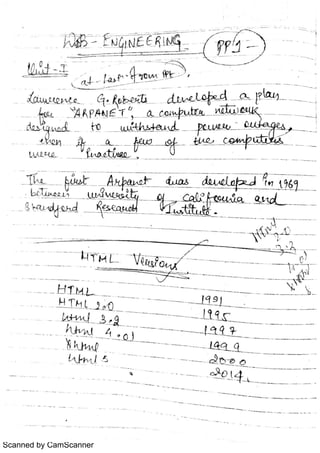 WEB - ENGINEERING
Unit - I
at - last - from
Lawrence G. Roberts developed a plan
for "ARPANET", a computer network
designed to withstand power outages,
even if a few of the computers
were inactive.
The first Arpanet was developed in 1969
between university of California and
Standford Research Institute.
HTML Versions
HTML 1991
HTML 2.0 1995
html 3.2 1997
html 4.01 1999
Xhtml 2000
html 5 2014.
Scanned by CamScanner